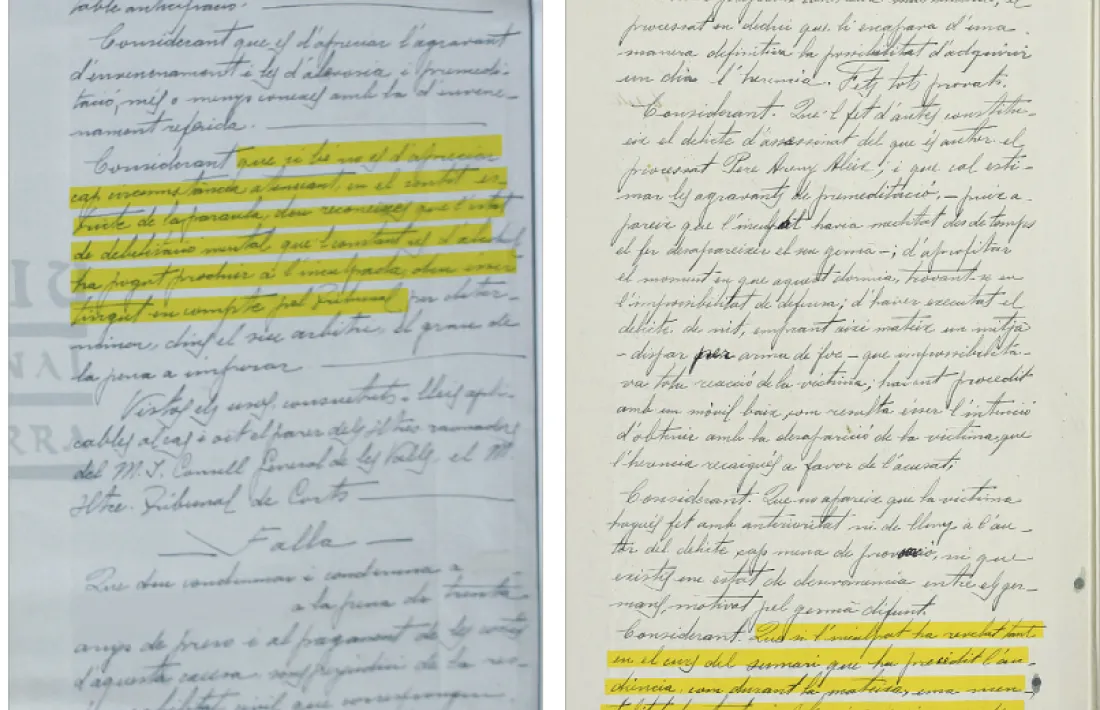 table anticipació.
Considerant que es d'apreciar l'agravant
d'enverenament i les d'alevosia i premedi-
tació, més o menys conexes amb la d'envere-
nament referida.
Considerant que si bé no es d'apreciar
cap circumstància atenuant, en el sentit es-
tricte de la paraula, deu reconeixes que l'estat
de debilitació mental, que l constant us d'alcohol
ha pogut produir a l'inculpada, deu ésser
tingut en compte pel Tribunal per deter-
minar, dins el seu arbitre, el grau de
la pena a imposar
Vistos els usos, consuetuts, lleis apli-
cables al cas i oit el parer dels Iltres raonadors
del M. I. Consell General de les Valls, el M.
Iltre. Tribunal de Corts
Falla
Que deu condemnar i condemna a
a la pena de trenta
anys de preso i al pagament de les costes
d'aquesta causa, sens perjudici de la res-
ponsabilitat civil que correspongui
processat en dedui que li escapara d'una
manera definitiva la possibilitat d'adquirir
un dia l'herencia. Fets tots provats.
Considerant. Que'l fet d'autes constitu-
eix el delicte d'assessinat del que és author el
processat Pere Areny Aleix; i que cal esti-
mar les agravants de premeditació, – puix a-
pareix que l'inculpat havia meditat des de temps
el fer desapareixer el seu germà –; d'aprofitar
el moment en que aquest dormia, trovant-se en
l'impossibilitat de defensa; d'haver executat el
delicte de nit, emprant aixi mateix un mitjà
– dispar per arma de foc – que impossibilità-
va tota reacció de la victima; havent procedit
amb un mòvil baix, com resulta ésser l'intenció
d'obtenir amb la desaparició de la victima, que
l'herencia recaigués a favor de l'acusat;
Considerant. Que no apareix que la victima
hagués fet amb anterioritat ni de lluny a l'au-
tor del delicte cap mena de provocació, ni que
existis en estat de desavinencia entre els ger-
mans, motivat pel germà difunt.
Considerant. Que si l'inculpat ha revelat tant
en el curs del sumari que ha precedit l'au-
diència, com durant la mateixa, una men-